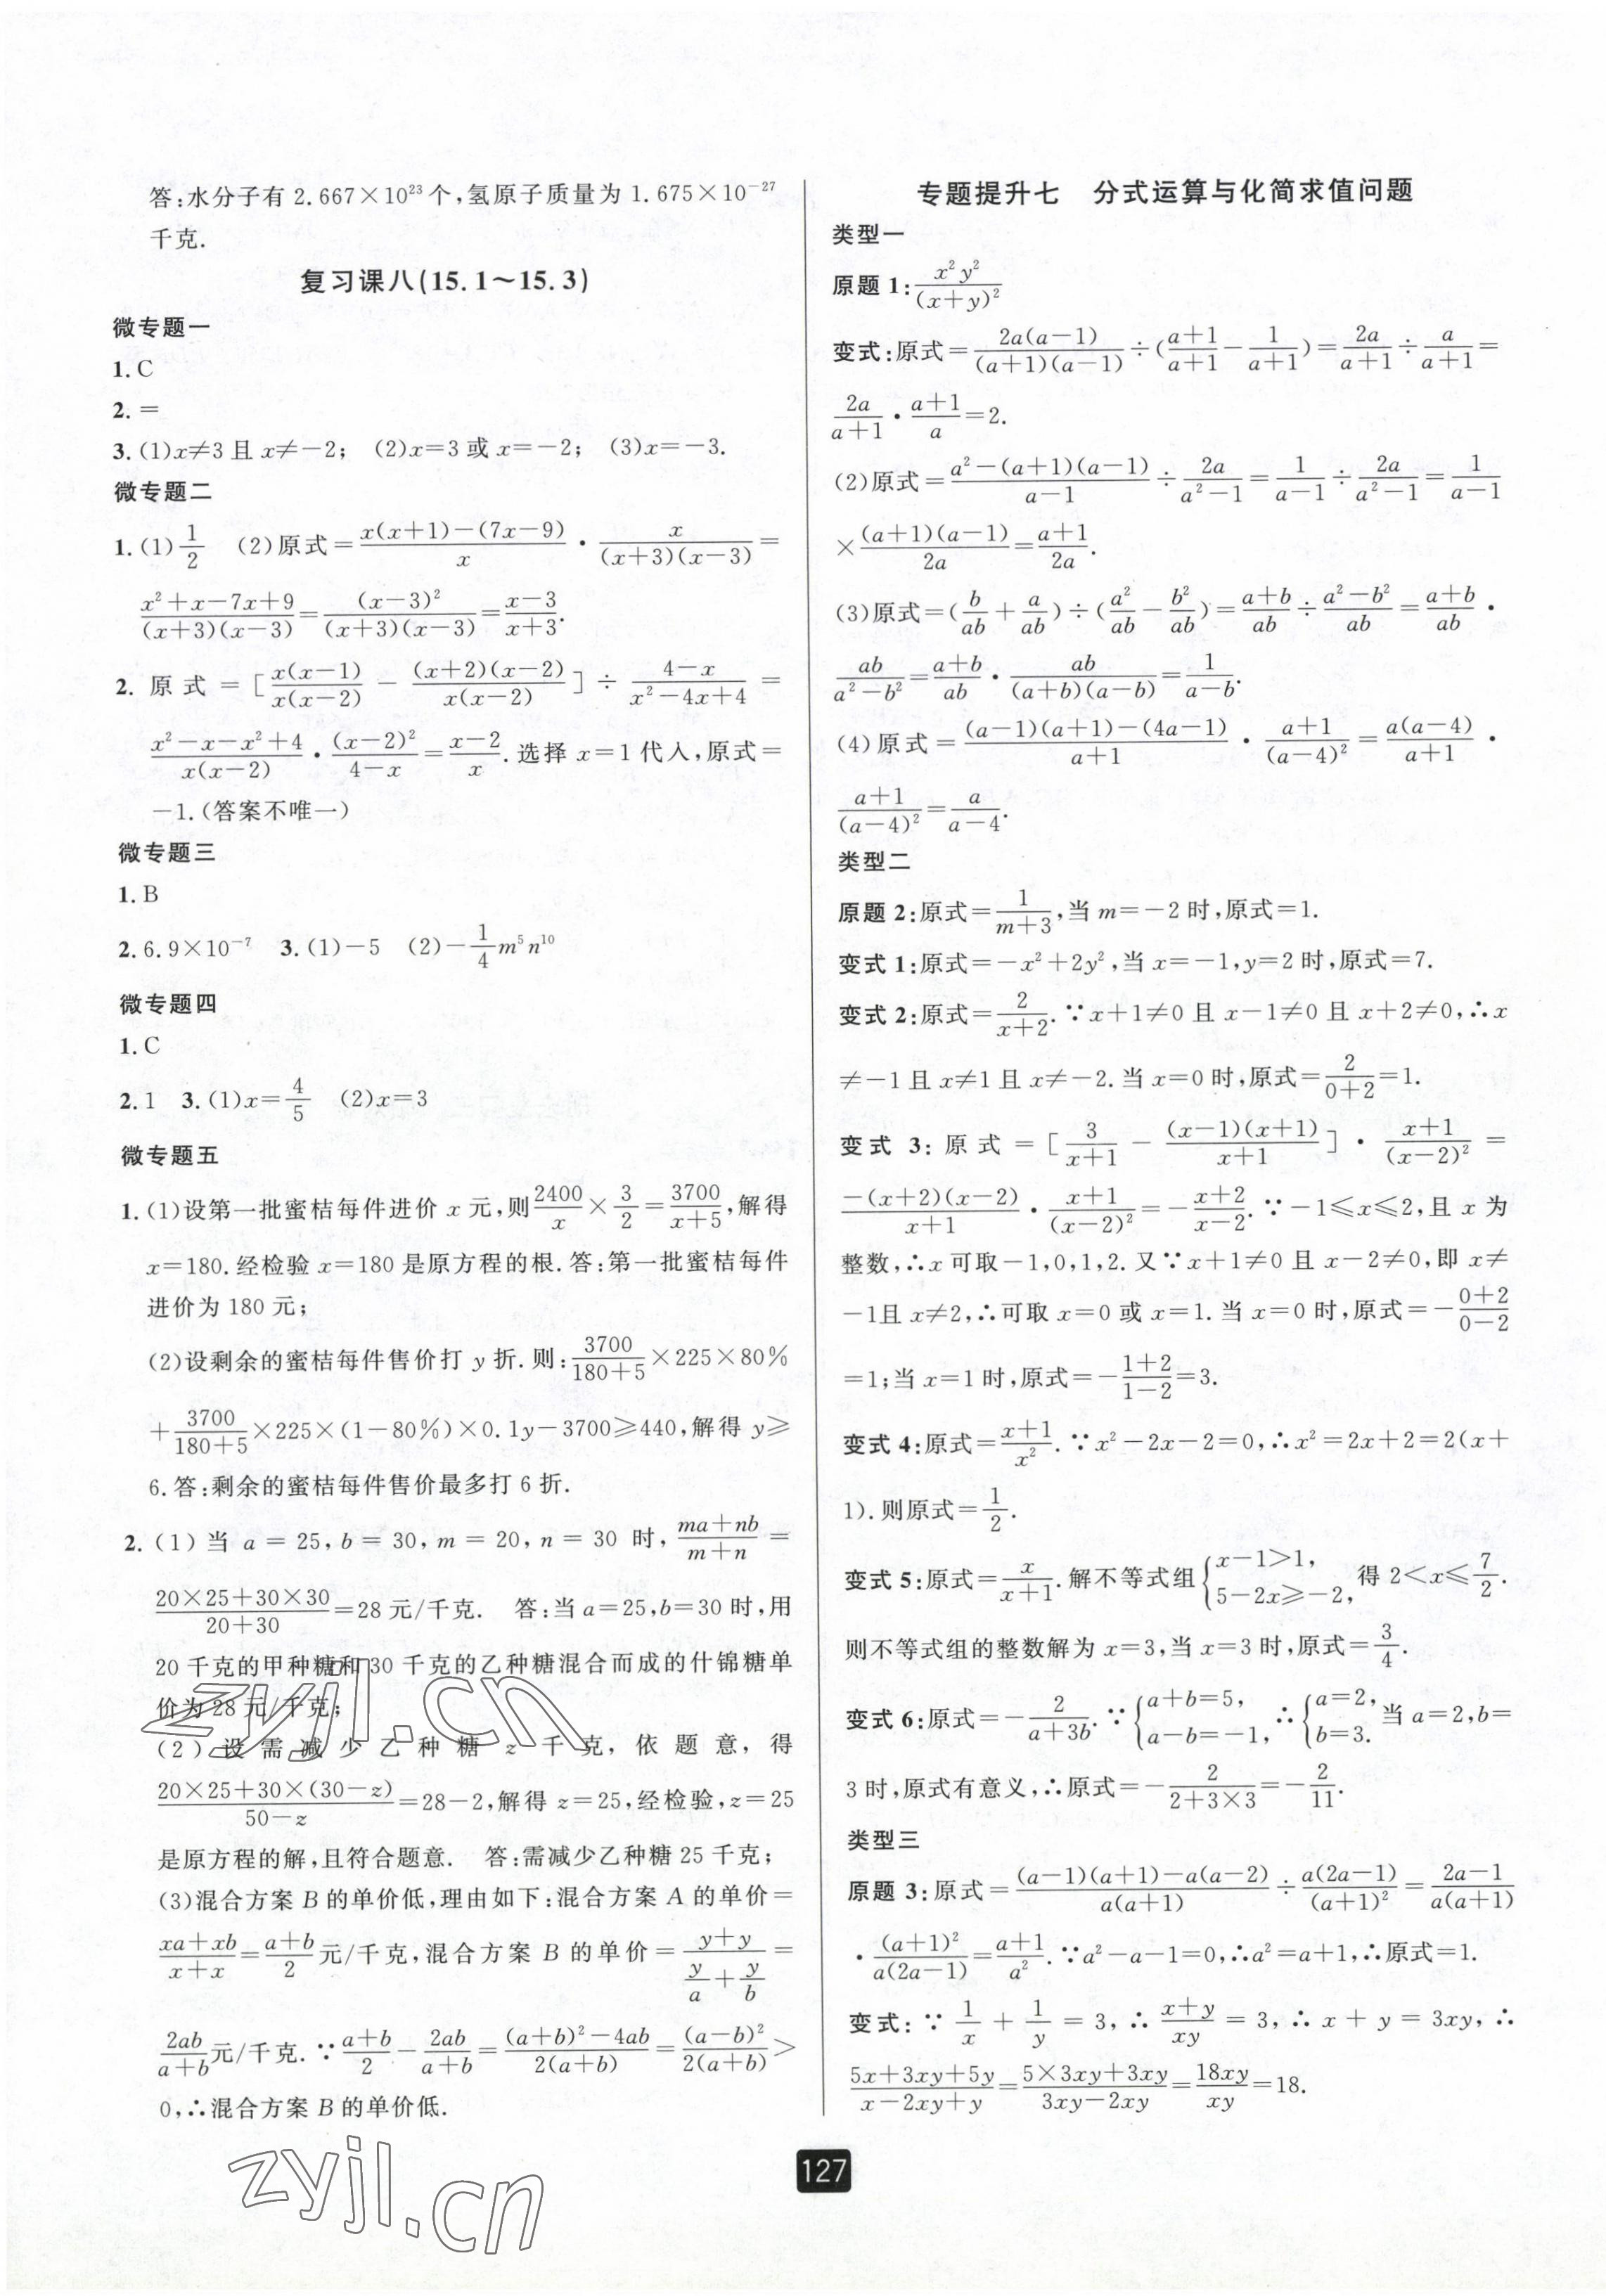 答:水分子有 2.667×10²³ 个,氢原子质量为 1.675×10⁻²⁷
千克.
复习课八(15.1～15.3)
微专题一
1.C
2.=
3.(1)x≠3 且 x≠-2; (2)x=3 或 x=-2; (3)x=-3.
微专题二
1.(1)$\frac{1}{2}$ (2)原式=$\frac{x(x+1)-(7x-9)}{x}$·$\frac{x}{(x+3)(x-3)}$=
$\frac{x^2+x-7x+9}{(x+3)(x-3)}$=$\frac{(x-3)^2}{(x+3)(x-3)}$=$\frac{x-3}{x+3}$.
2. 原式=[$\frac{x(x-1)}{x(x-2)}$-$\frac{(x+2)(x-2)}{x(x-2)}$]÷$\frac{4-x}{x^2-4x+4}$=
$\frac{x^2-x-x^2+4}{x(x-2)}$·$\frac{(x-2)^2}{4-x}$=$\frac{x-2}{x}$.选择 x=1 代入,原式=
-1.(答案不唯一)
微专题三
1.B
2.6.9×10⁻⁷ 3.(1)-5 (2)-$\frac{1}{4}$m⁵n¹⁰
微专题四
1.C
2.1 3.(1)x=$\frac{4}{5}$ (2)x=3
微专题五
1.(1)设第一批蜜桔每件进价 x 元,则$\frac{2400}{x}$×$\frac{3}{2}$=$\frac{3700}{x+5}$,解得
x=180.经检验 x=180 是原方程的根.答:第一批蜜桔每件
进价为 180 元;
(2)设剩余的蜜桔每件售价打 y 折.则:$\frac{3700}{180+5}$×225×80%
+$\frac{3700}{180+5}$×225×(1-80%)×0.1y-3700≥440,解得 y≥
6.答:剩余的蜜桔每件售价最多打 6 折.
2.(1)当 a=25,b=30,m=20,n=30 时,$\frac{ma+nb}{m+n}$=
$\frac{20×25+30×30}{20+30}$=28 元/千克. 答:当 a=25,b=30 时,用
20 千克的甲种糖和 30 千克的乙种糖混合而成的什锦糖单
价为 28 元/千克;
(2)设需减少乙种糖 z 千克,依题意,得
$\frac{20×25+30×(30-z)}{50-z}$=28-2,解得 z=25,经检验,z=25
是原方程的解,且符合题意. 答:需减少乙种糖 25 千克;
(3)混合方案 B 的单价低,理由如下:混合方案 A 的单价=
$\frac{xa+xb}{x+x}$=$\frac{a+b}{2}$元/千克,混合方案 B 的单价=$\frac{y+y}{\frac{y}{a}+\frac{y}{b}}$=
$\frac{2ab}{a+b}$元/千克.∵$\frac{a+b}{2}$-$\frac{2ab}{a+b}$=$\frac{(a+b)^2-4ab}{2(a+b)}$=$\frac{(a-b)^2}{2(a+b)}$>
0,∴混合方案 B 的单价低.
专题提升七 分式运算与化简求值问题
类型一
原题 1:$\frac{x^2y^2}{(x+y)^2}$
变式:原式=$\frac{2a(a-1)}{(a+1)(a-1)}$÷($\frac{a+1}{a+1}$-$\frac{1}{a+1}$)=$\frac{2a}{a+1}$÷$\frac{a}{a+1}$=
$\frac{2a}{a+1}$·$\frac{a+1}{a}$=2.
(2)原式=$\frac{a^2-(a+1)(a-1)}{a-1}$÷$\frac{2a}{a^2-1}$=$\frac{1}{a-1}$÷$\frac{2a}{a^2-1}$=$\frac{1}{a-1}$
×$\frac{(a+1)(a-1)}{2a}$=$\frac{a+1}{2a}$.
(3)原式=($\frac{b}{ab}$+$\frac{a}{ab}$)÷($\frac{a^2}{ab}$-$\frac{b^2}{ab}$)=$\frac{a+b}{ab}$÷$\frac{a^2-b^2}{ab}$=$\frac{a+b}{ab}$·
$\frac{ab}{a^2-b^2}$=$\frac{a+b}{ab}$·$\frac{ab}{(a+b)(a-b)}$=$\frac{1}{a-b}$.
(4)原式=$\frac{(a-1)(a+1)-(4a-1)}{a+1}$·$\frac{a+1}{(a-4)^2}$=$\frac{a(a-4)}{a+1}$·
$\frac{a+1}{(a-4)^2}$=$\frac{a}{a-4}$.
类型二
原题 2:原式=$\frac{1}{m+3}$,当 m=-2 时,原式=1.
变式 1:原式=-x²+2y²,当 x=-1,y=2 时,原式=7.
变式 2:原式=$\frac{2}{x+2}$.∵x+1≠0 且 x-1≠0 且 x+2≠0,∴x
≠-1 且 x≠1 且 x≠-2.当 x=0 时,原式=$\frac{2}{0+2}$=1.
变式 3:原式=[$\frac{3}{x+1}$-$\frac{(x-1)(x+1)}{x+1}$]·$\frac{x+1}{(x-2)^2}$=
$\frac{-(x+2)(x-2)}{x+1}$·$\frac{x+1}{(x-2)^2}$=-$\frac{x+2}{x-2}$.∵-1≤x≤2,且 x 为
整数,∴x 可取-1,0,1,2.又∵x+1≠0 且 x-2≠0,即 x≠
-1且 x≠2,∴可取 x=0 或 x=1.当 x=0 时,原式=-$\frac{0+2}{0-2}$
=1;当 x=1 时,原式=-$\frac{1+2}{1-2}$=3.
变式 4:原式=$\frac{x+1}{x^2}$.∵x²-2x-2=0,∴x²=2x+2=2(x+
1).则原式=$\frac{1}{2}$.
变式 5:原式=$\frac{x}{x+1}$.解不等式组$\begin{cases}x-1>1,\\5-2x≥-2,\end{cases}$得 2<x≤$\frac{7}{2}$.
则不等式组的整数解为 x=3,当 x=3 时,原式=$\frac{3}{4}$.
变式 6:原式=-$\frac{2}{a+3b}$.∵$\begin{cases}a+b=5,\\a-b=-1,\end{cases}$∴$\begin{cases}a=2,\\b=3.\end{cases}$当 a=2,b=
3 时,原式有意义,∴原式=-$\frac{2}{2+3×3}$=-$\frac{2}{11}$.
类型三
原题 3:原式=$\frac{(a-1)(a+1)-a(a-2)}{a(a+1)}$÷$\frac{a(2a-1)}{(a+1)^2}$=$\frac{2a-1}{a(a+1)}$
·$\frac{(a+1)^2}{a(2a-1)}$=$\frac{a+1}{a^2}$.∵a²-a-1=0,∴a²=a+1,∴原式=1.
变式:∵$\frac{1}{x}$+$\frac{1}{y}$=3,∴$\frac{x+y}{xy}$=3,∴x+y=3xy,∴
$\frac{5x+3xy+5y}{x-2xy+y}$=$\frac{5×3xy+3xy}{3xy-2xy}$=$\frac{18xy}{xy}$=18.
127
zyjl.cn
zyjl.cn